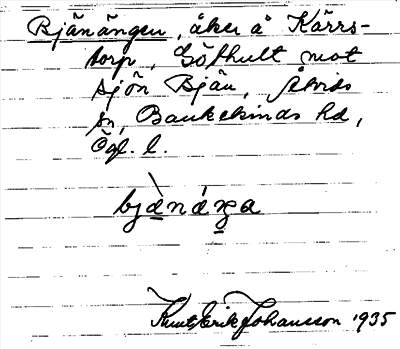 Bjänängen, åker å Kärrs-
torp, Göthult mot
sjön Bjän, Åtvids
sn, Bankekinds hd,
Ögl. l.
bjä̀náŋa
Knut Erik Johansson 1935